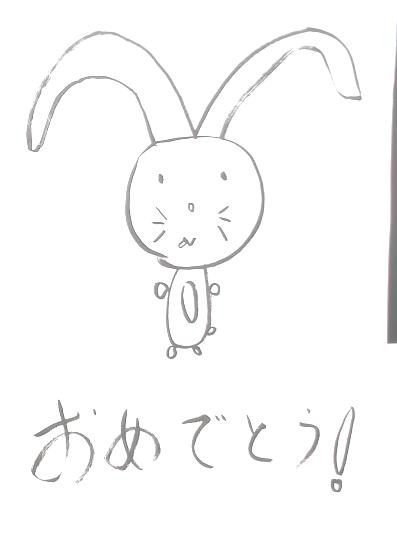 おめでとう!